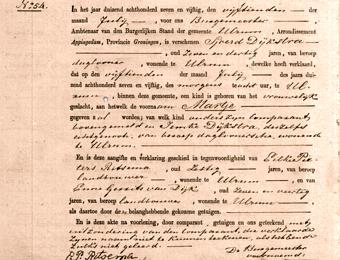 N° 254.
In het jaar duizend achthonderd zeven en vijftig, den vijftienden der
maand July, voor ons Burgemeester
Ambtenaar van den Burgerlijken Stand der gemeente Ulrum, Arrondissement
Appingedam, Provincie Groningen, is verschenen Sjoerd Dijkstra
oud zeven en dertig jaren, van beroep
daglooner, wonende te Ulrum, dewelke heeft verklaard,
dat op den vijftienden der maand July, des jaars duizend
achthonderd zeven en vijftig, des morgens te uur, te Ul-
rum, binnen deze gemeente, een kind is geboren van het vrouwelijk
geslacht, aan hetwelk de voornaam Martje
gegeven zal worden; van welk kind comparant
bovengemeld en Jemke Dijkstra, deszelfs
echtgenoot, van beroep dagloonersche, wonende
te Ulrum.
En is deze aangifte en verklaring geschied in tegenwoordigheid van Pie-
ters Ritsema, oud Zestig jaren, van beroep
landbouwer, wonende te Ulrum, en van
Gerrits van Dijk, oud Zeven en veertig
jaren, van beroep landbouwer, wonende te Ulrum,
als daartoe door den belanghebbende gekozene getuigen.
En is deze akte na voorlezing, door comparant, getuigen en ons geteekend, met
uitzondering van den comparant, die verklaarde
zijnen naam niet te kunnen teekenen, als hebbende
zulks niet geleerd.
De Burgemeester
P. Ritsema